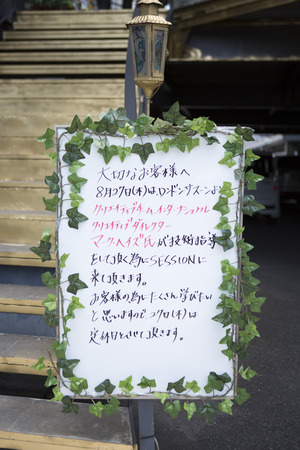 大切なお客様へ
8月27日(木)は、ロンドンサスーンより
クリエイティブチーム、インターナショナル
クリエイティブディレクター
マークヘイズ氏が技術指導
をして頂く為にSESSIONに
来て頂きます。
お客様の為にたくさん学びたい
と思いますので27日(木)は
定休日とさせて頂きます。